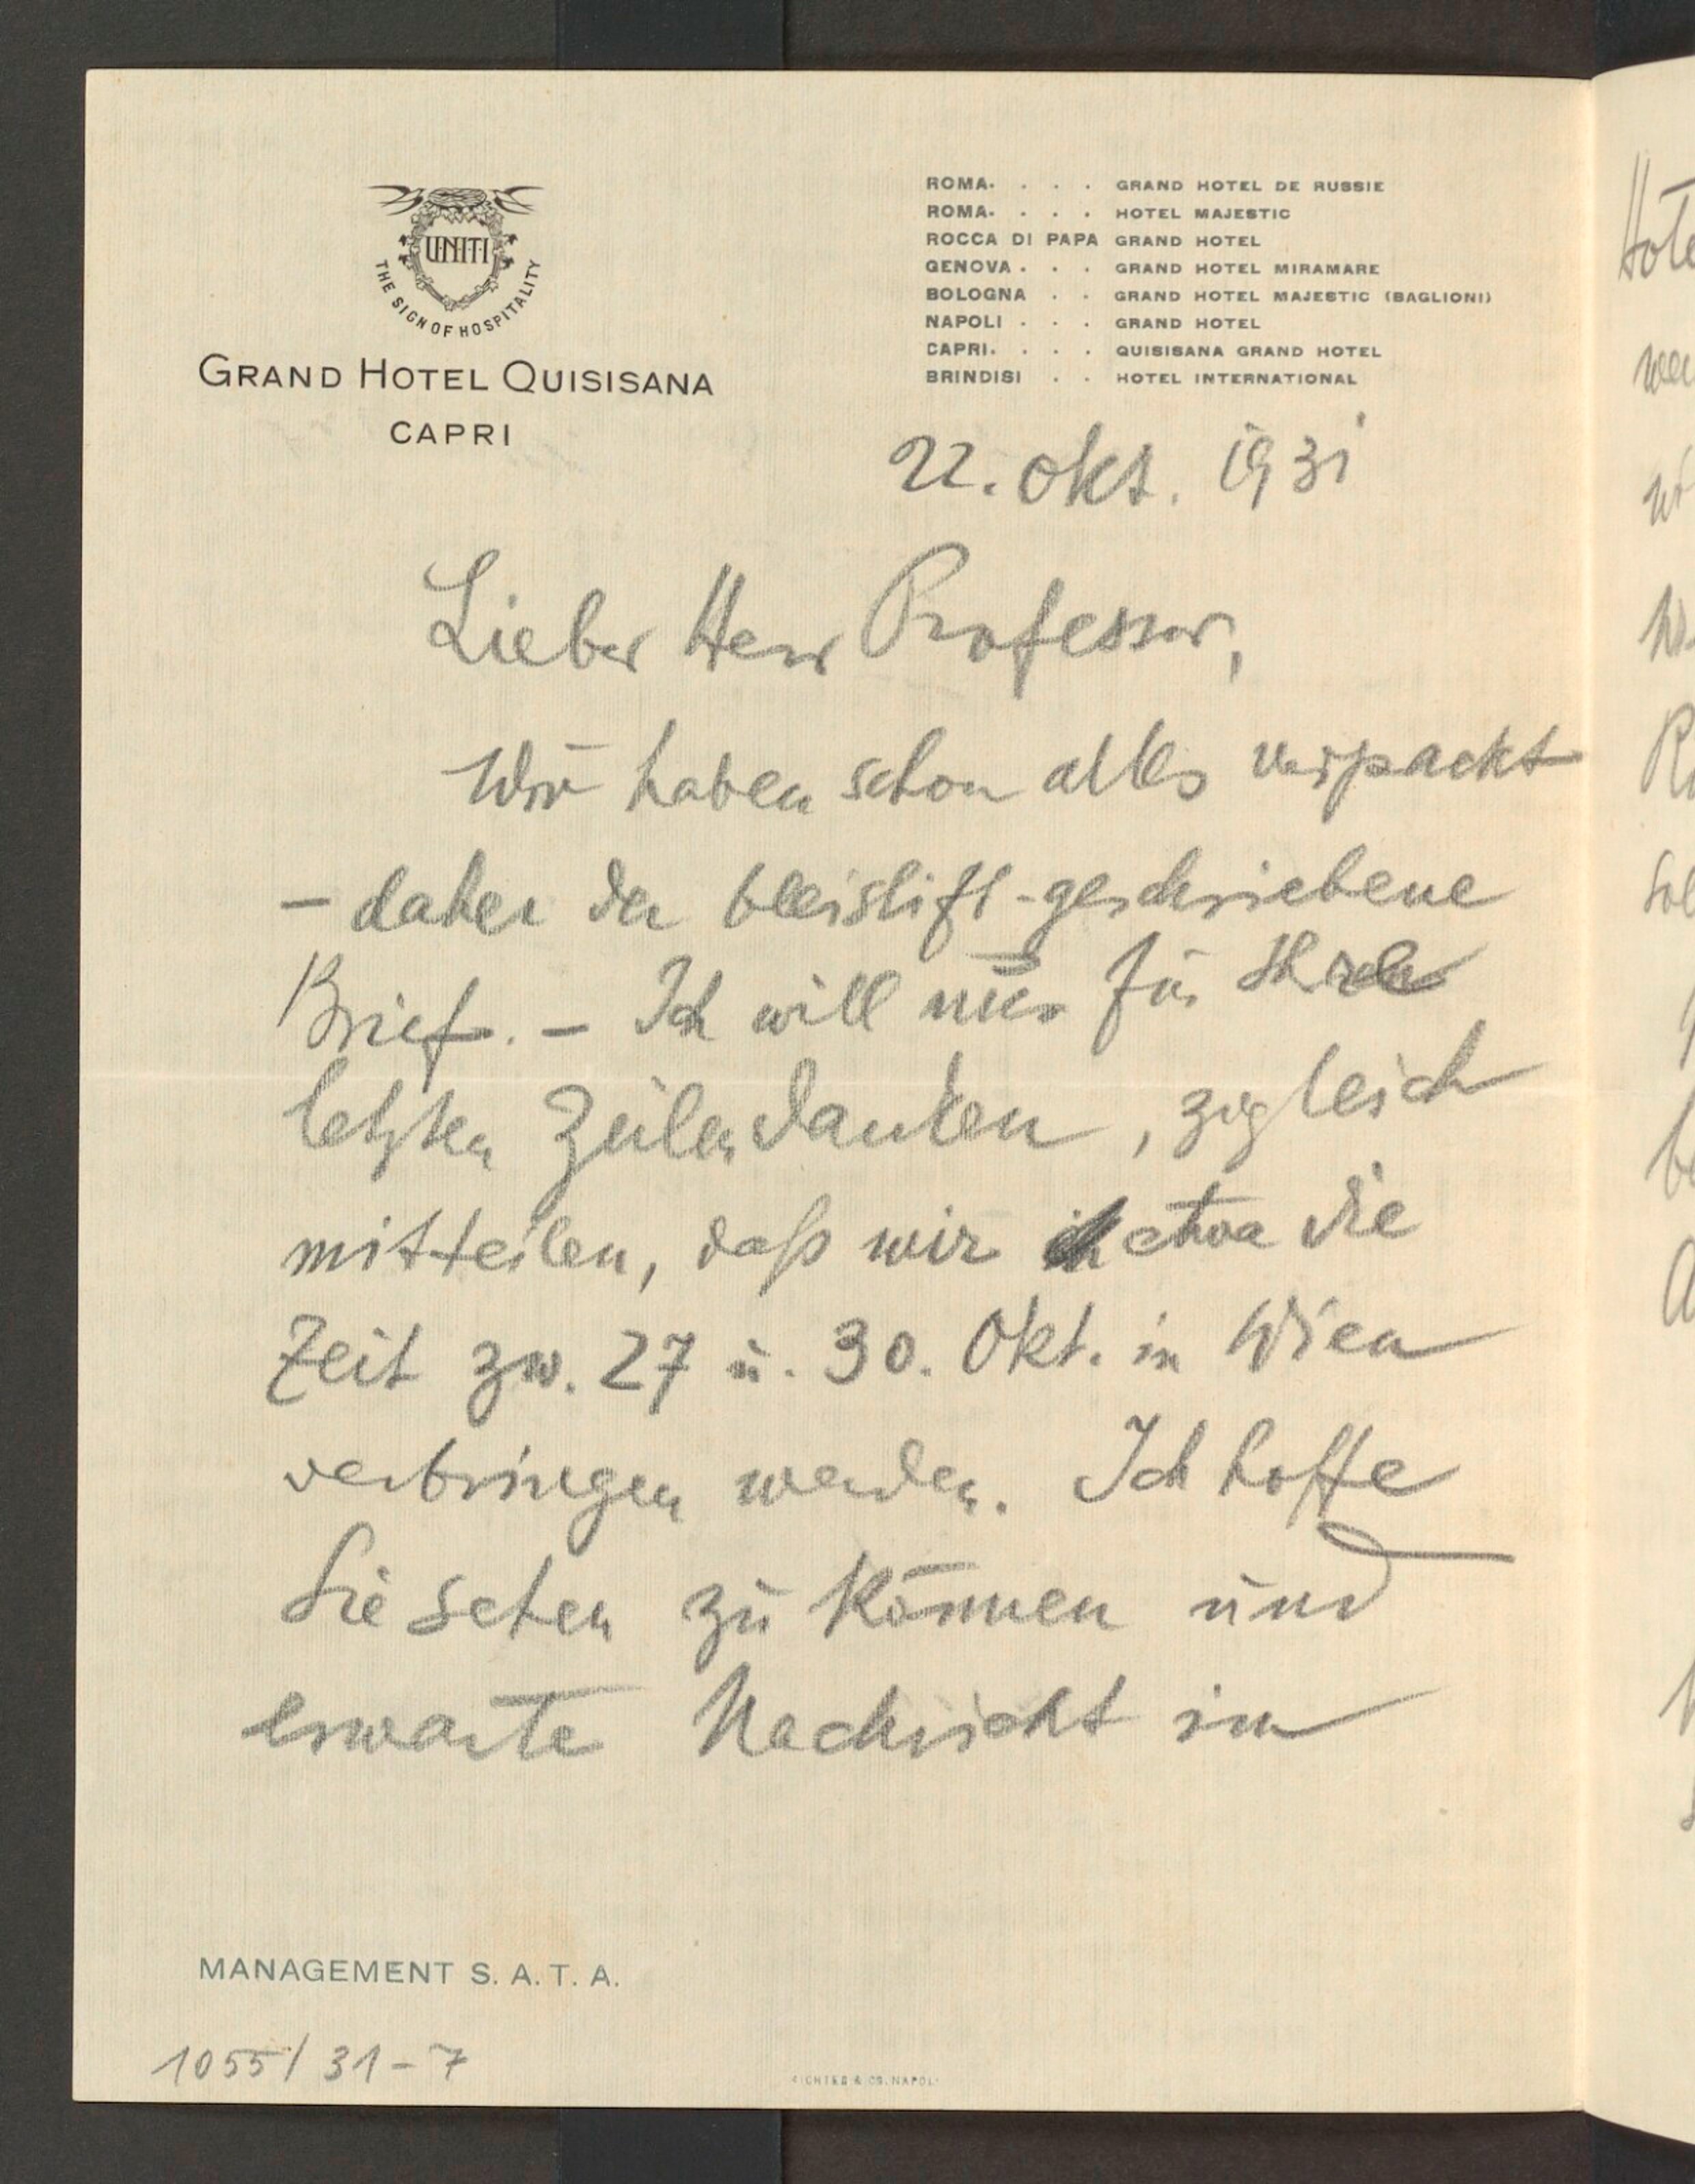 UNITI
THE SIGN OF HOSPITALITY
GRAND HOTEL QUISISANA
CAPRI
ROMA. . . . GRAND HOTEL DE RUSSIE
ROMA. . . . HOTEL MAJESTIC
ROCCA DI PAPA GRAND HOTEL
GENOVA . . . GRAND HOTEL MIRAMARE
BOLOGNA . . GRAND HOTEL MAJESTIC (BAGLIONI)
NAPOLI . . . GRAND HOTEL
CAPRI. . . . QUISISANA GRAND HOTEL
BRINDISI . . HOTEL INTERNATIONAL
22. Okt. 1931
Lieber Herr Professor,
Wir haben schon alles verpackt
– daher der bleistift-geschriebene
Brief. – Ich will nur für Ihre
letzten Zeilen danken, zugleich
mitteilen, daß wir etwa die
Zeit zw. 27 u. 30. Okt. in Wien
verbringen werden. Ich hoffe
Sie sehen zu können und
erwarte Nachricht im
MANAGEMENT S. A. T. A.
1055/31-7
RICHTER & CO. NAPOLI